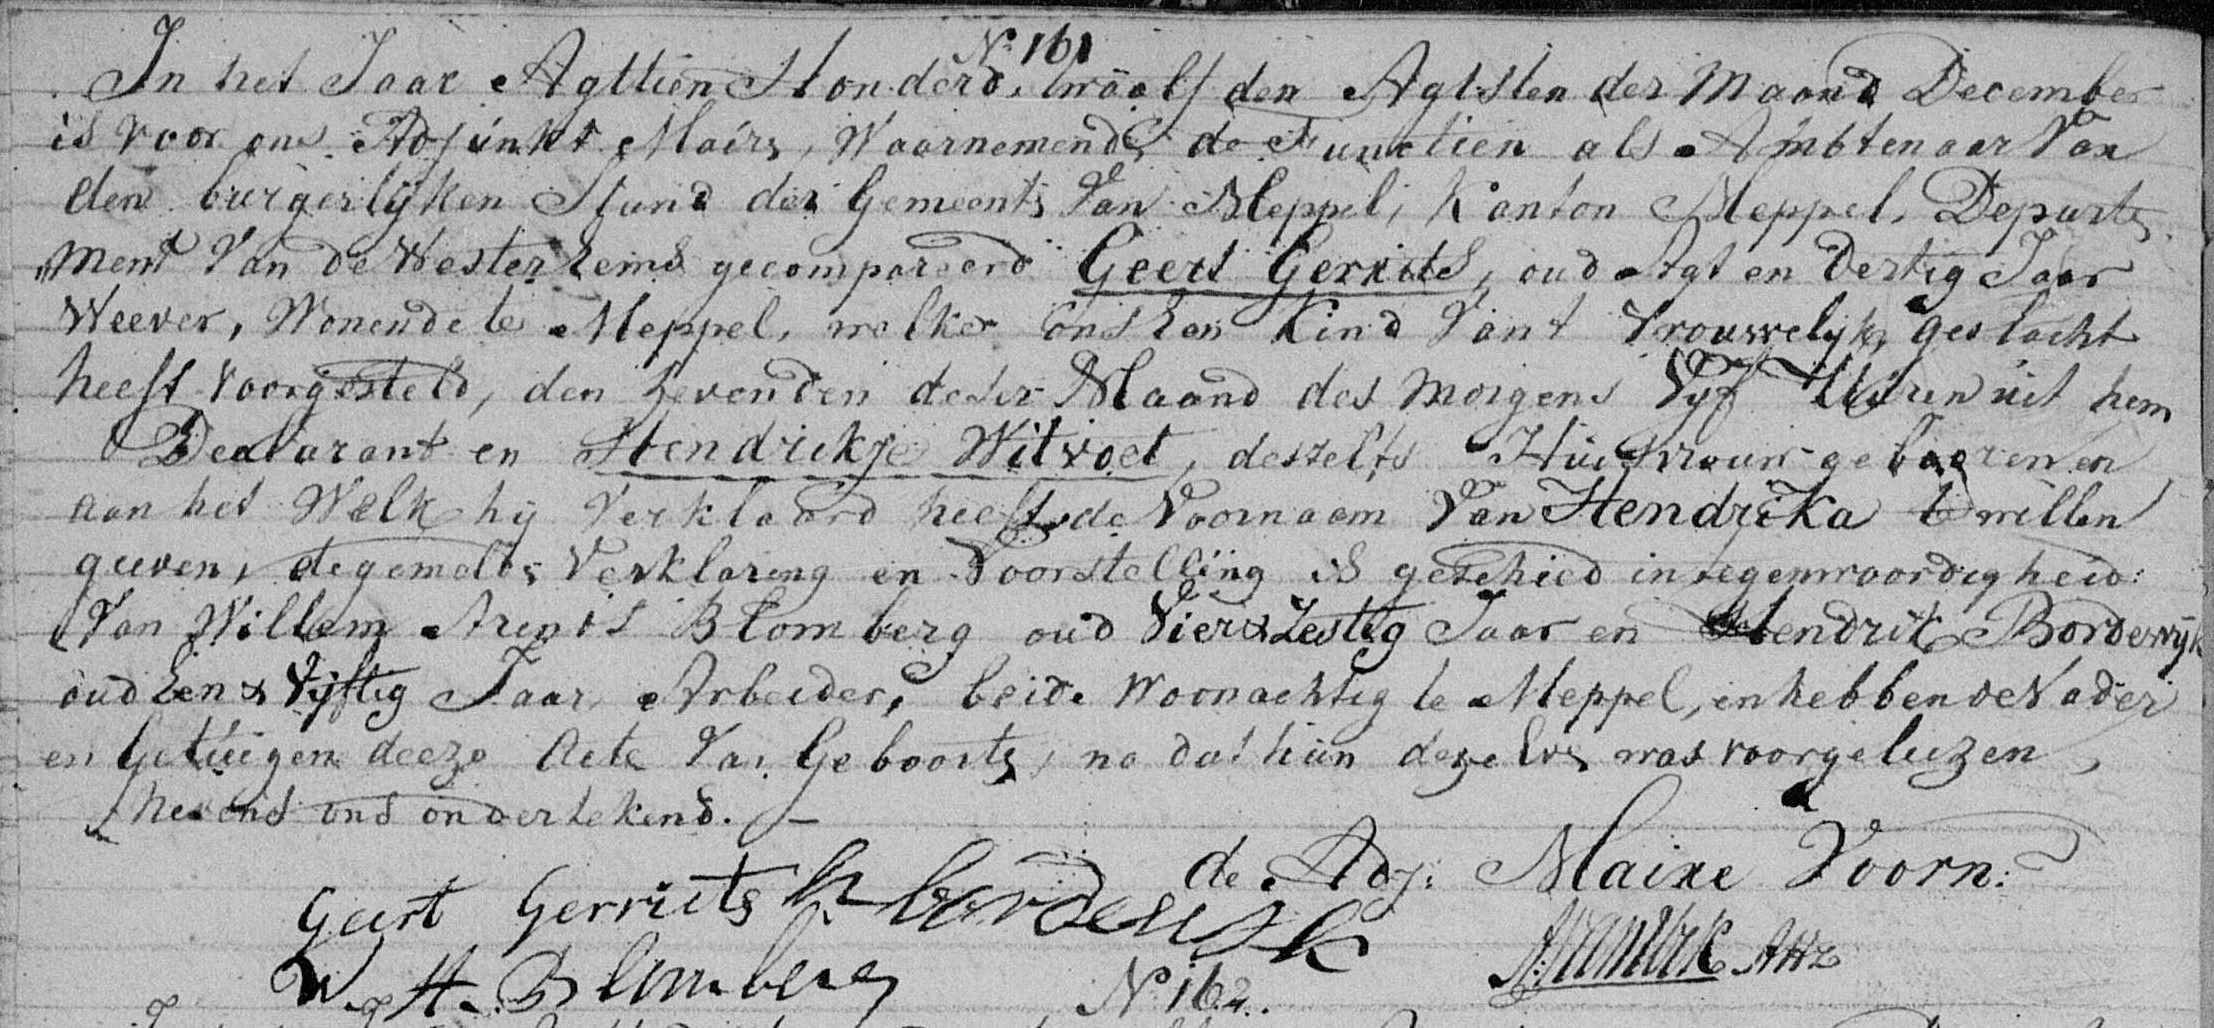 N: 161
In het Jaar Agttien Honderd, twaalf den Agtsten der Maand December
is voor ons Adjunkt Maire, Waarnemende de Functien als Ambtenaar Van
den burgerlyken Stand der Gemeente Van Meppel, Kanton Meppel, Departe
„ment Van de Wester Eems gecompareerd Geert Gerrits, oud Agt en Dertig Jaar
Weever, Wonende te Meppel, welker ons Een Kind Van 't Vrouwelyk geslacht
heeft voorgesteld, den Zevenden deser Maand des morgens Vyf Uuren uit hem
Declarant en Hendrikje Witvoet, deszelfs Huisvrouw gebooren en
aan het Welk hy Verklaard heeft de Voornaam Van Hendrika te willen
geeven, de gemelde Verklaring en Voorstelling is geschied in tegenwoordigheid
Van Willem Arents Blomberg oud Vier & Zestig Jaar en Hendrik Bordewyk
oud Een & Vyftig Jaar Arbeider, beide Woonachtig te Meppel, en hebben de Vader
en Getuigen deeze Acte Van Geboorte, na dat hun dezelve was voorgeleezen,
nevens ons ondertekend. –
de Adj: Maire Voorn:
Geert Gerriets H bordewyk
W. A. Blomberg
N: 162.